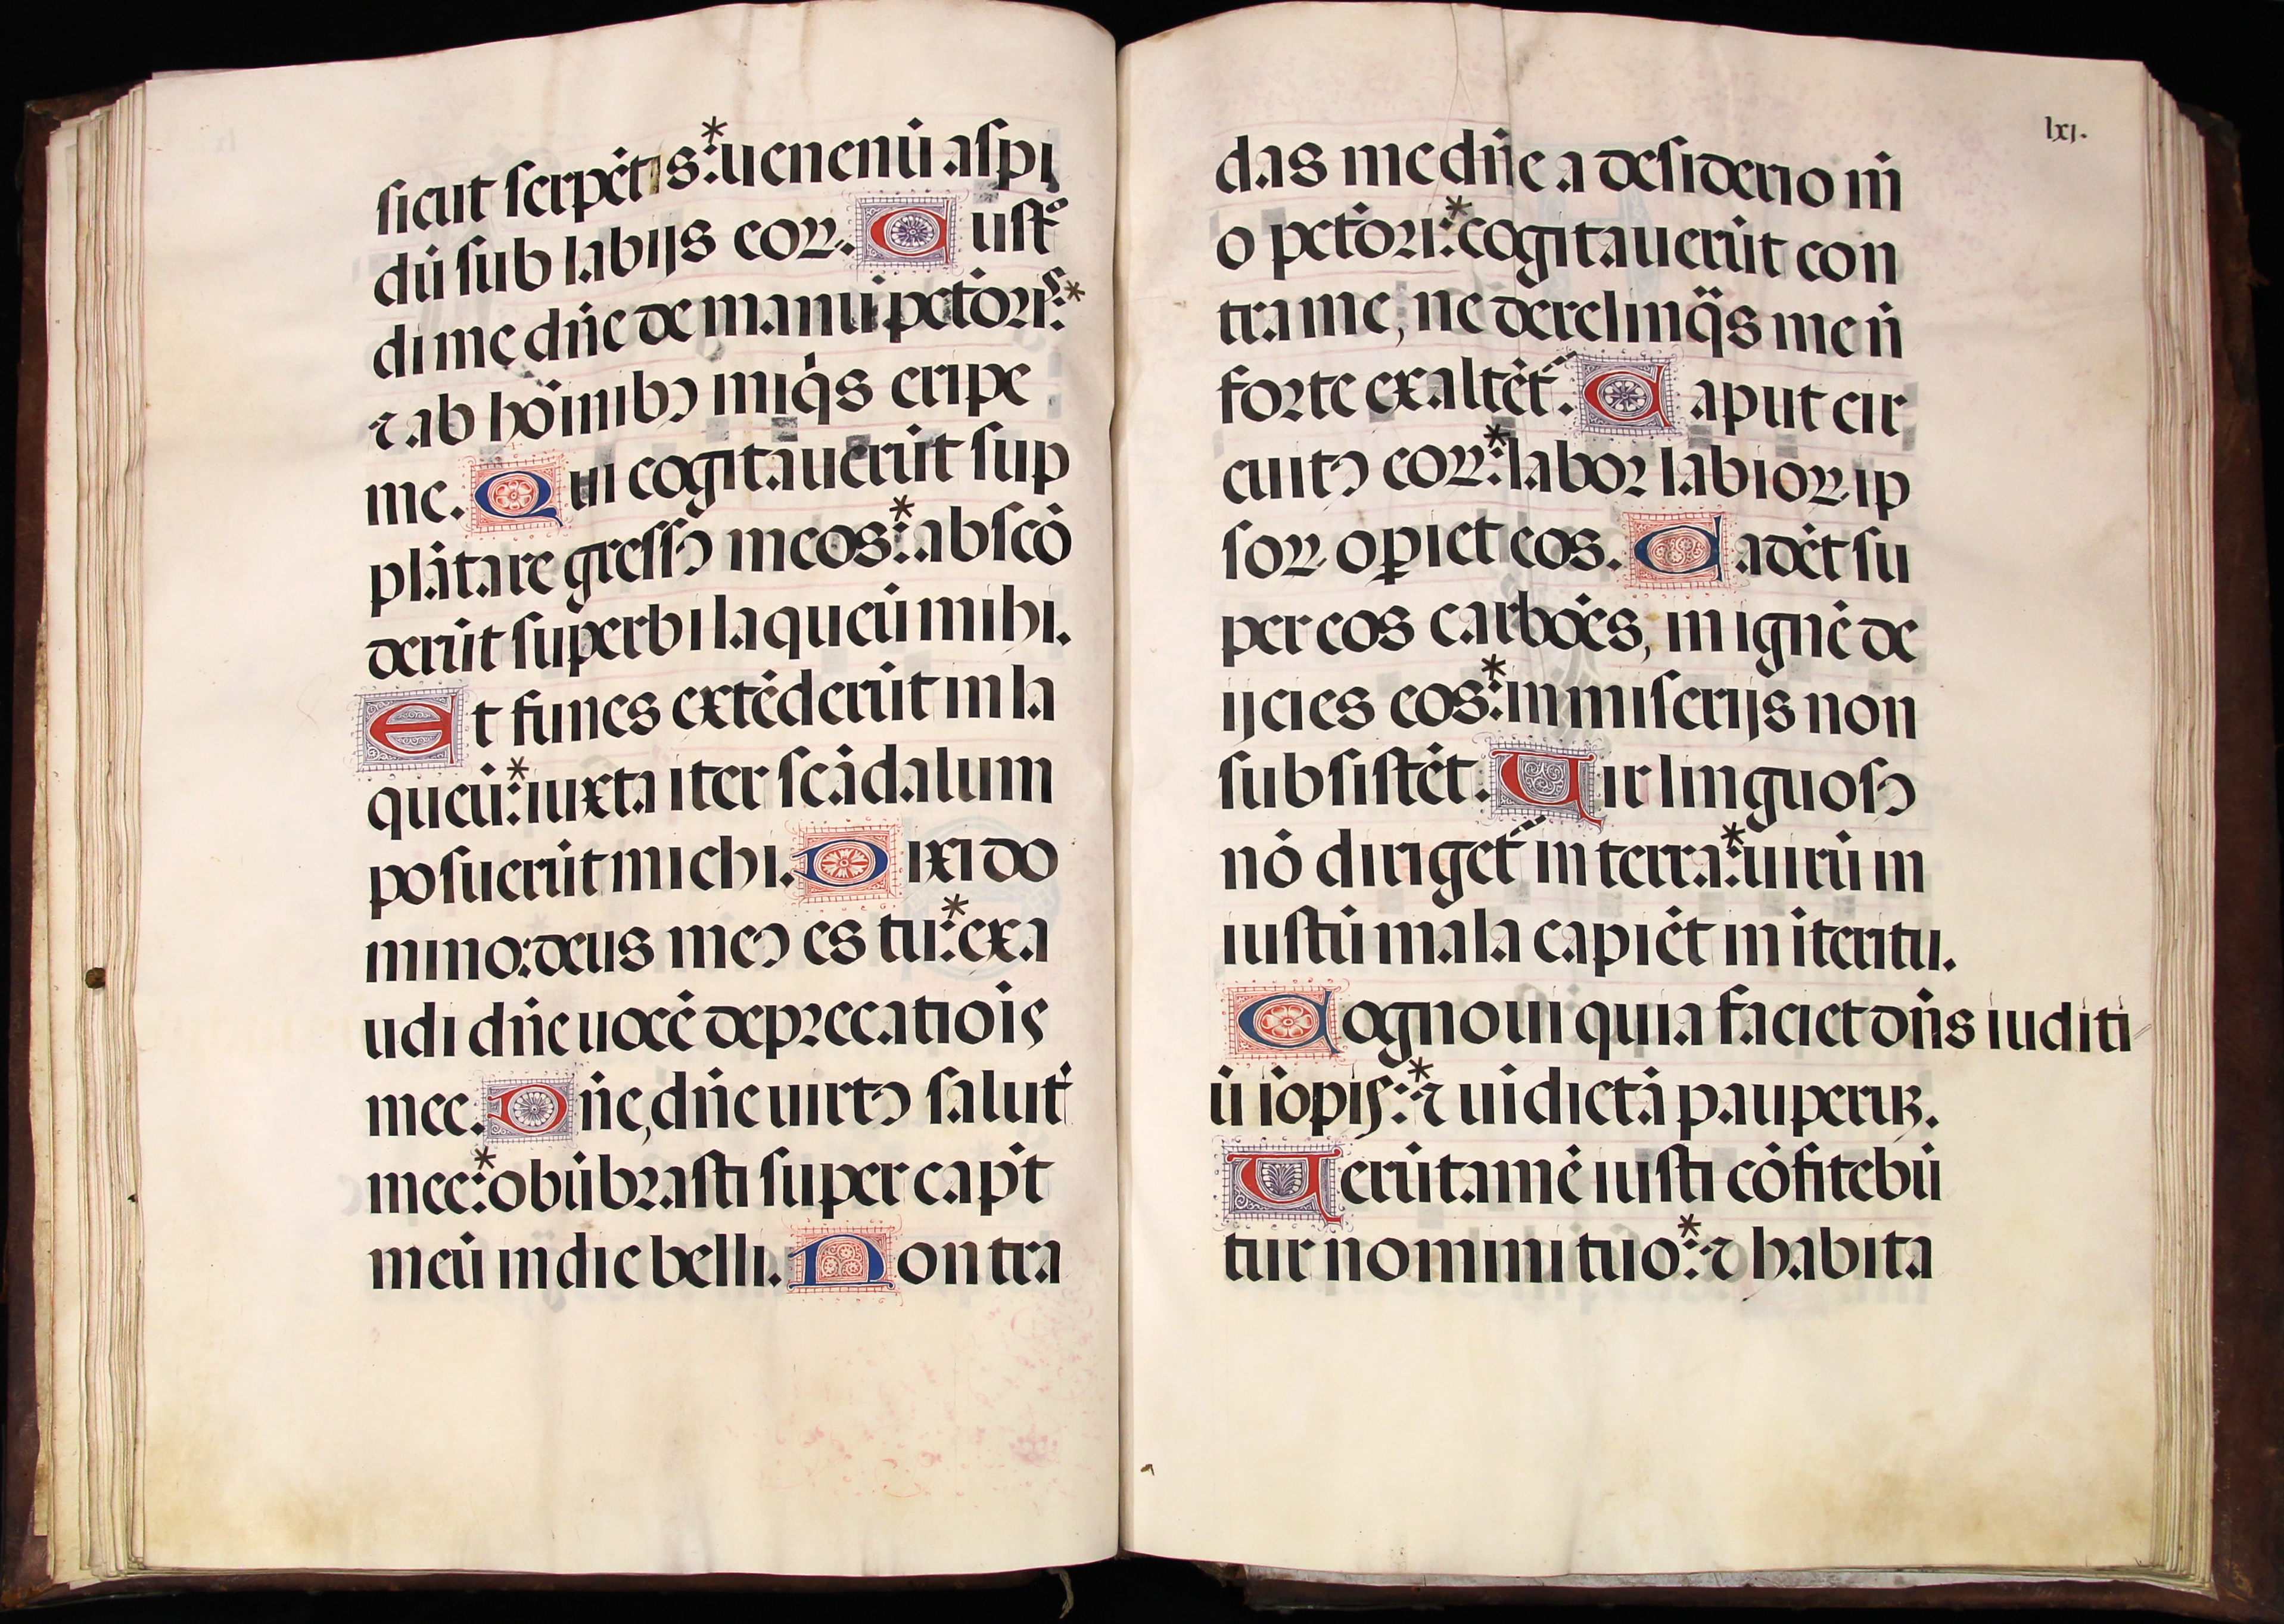 sicut serpēt is: * uenenū aspi
dū sub labijs coꝝ. C ustº
di me dn̄e de manu pctōris: *
⁊ ab hoīnibꝰ iniqͥs eripe
me. Qui cogitauerūt sup
plātare gressꝰ meos: * abscō
derūt superbi laqueū mihi.
Et funes extēderūt in la
queū: * iuxta iter scādalum
posuerūt michi. Dixi do
mino: deus meꝰ es tu: * exa
udi dn̄e uocē deprecatiōis
mee. Dn̄e, dn̄e uirtꝰ salutꝭ
mee: * obūbrasti super capͥt
meū in die belli. Non tra
lxj.
das me dn̄e a desiderio m̄
o pctōri: * cogitauerūt con
tra me, ne derelinqͣs me n̄
forte exaltēt᷑. Caput cir
cuitꝰ coꝝ: * labor labioꝝ ip
soꝝ oꝑiet eos. Cadēt su
per eos carbōes, in ignē de
ijcies eos: * in miserijs non
subsistēt. Uir linguosꝰ
nō diriget᷑ in terra: * uirū in
iustū mala capiēt in īteritu.
Cognoui quia faciet dn̄s iuditi
ū īopis: * ⁊ uīdictā pauperuꝫ.
Uerūtamē iusti cōfitebū
tur nomini tuo: * ⁊ habita